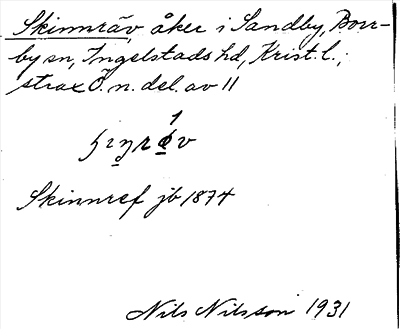 Skinnräv, åker i Sandby, Borr-
by sn, Ingelstads hd, Krist. l.;
strax Ö. n. del. av 11
Skinnref jb 1874
Nils Nilsson 1931